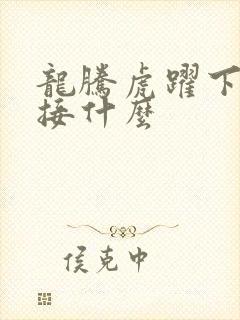 龍騰虎躍下
接什麼
侯克中